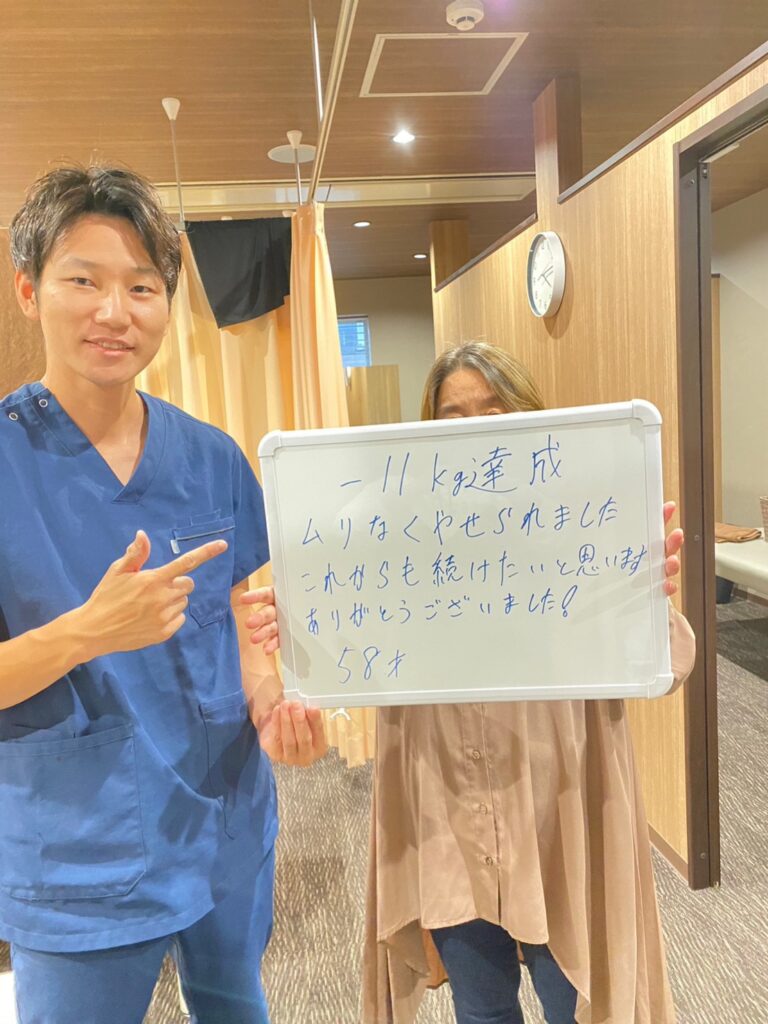 －11kg達成
ムリなくやせられました
これからも続けたいと思います
ありがとうございました！
58才